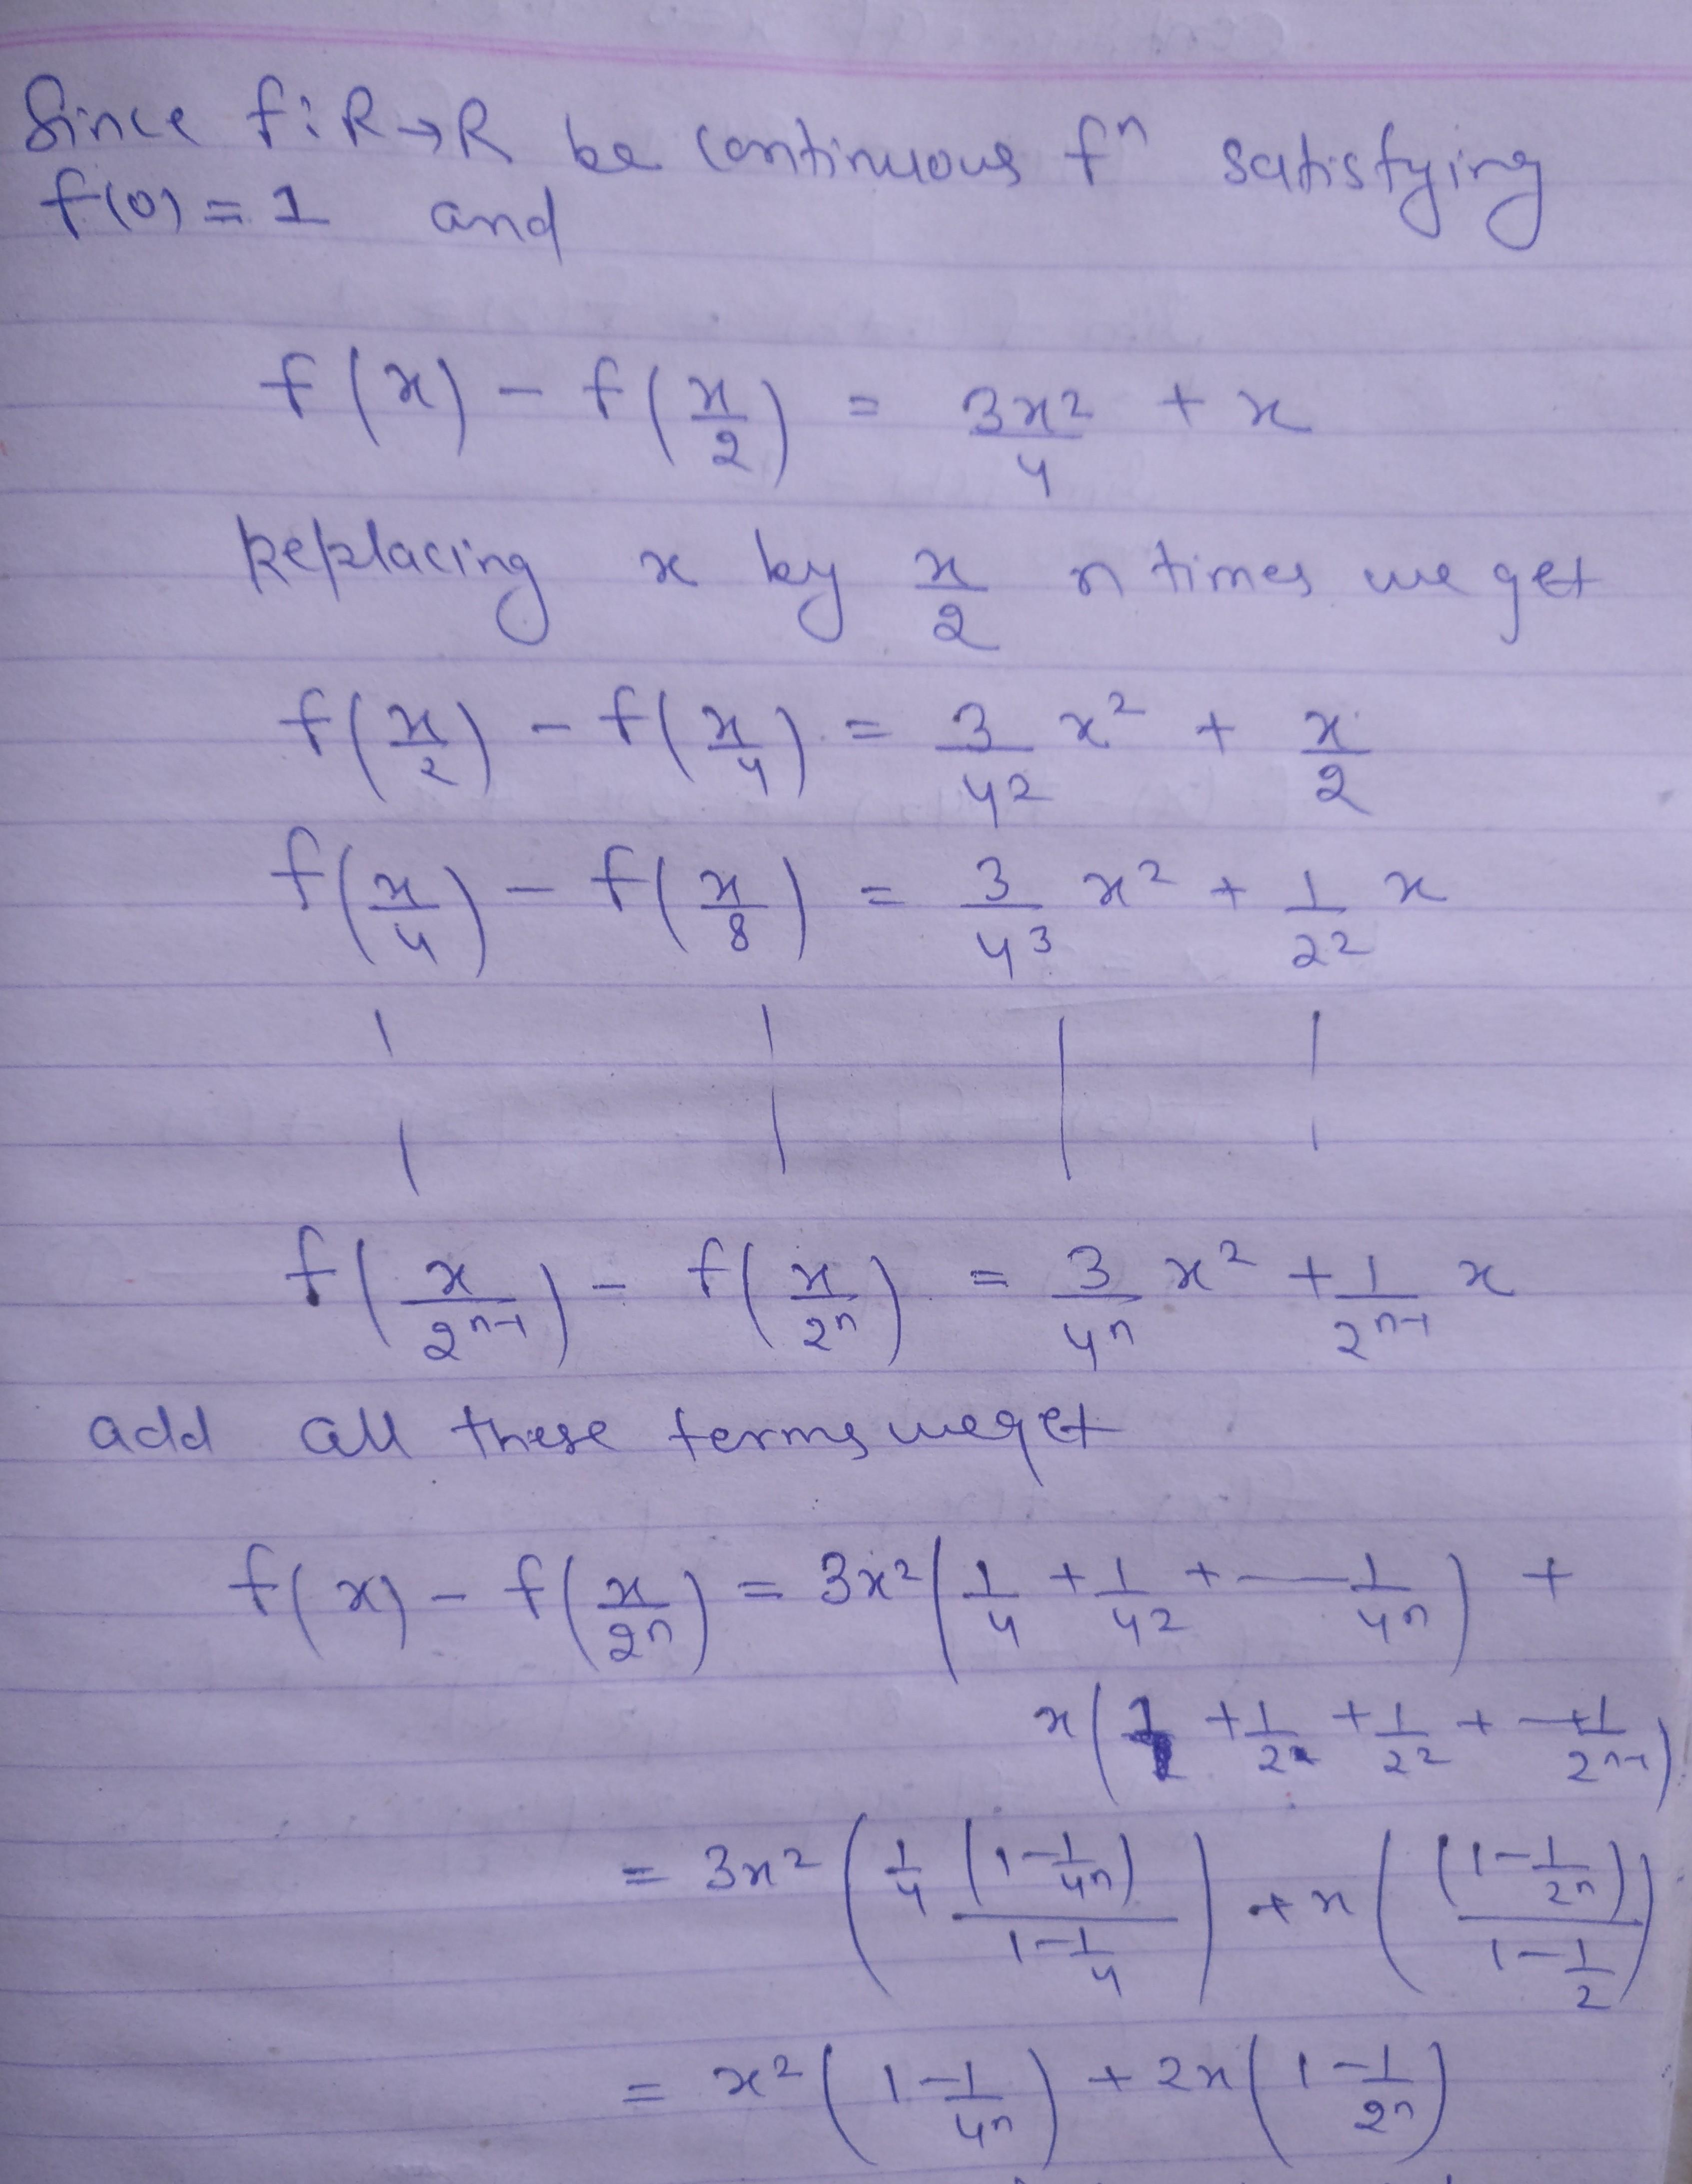 Since f: R → R be continuous fⁿ satisfying
f(0) = 1 and
f(x) - f(x/2) = 3x²/4 + x
Replacing x by x/2 n times we get
f(x/2) - f(x/4) = 3/4² x² + x/2
f(x/4) - f(x/8) = 3/4³ x² + 1/2² x
f(x/2ⁿ⁻¹) - f(x/2ⁿ) = 3/4ⁿ x² + 1/2ⁿ⁻¹ x
add all these terms we get
f(x) - f(x/2ⁿ) = 3x² (1/4 + 1/4² + — 1/4ⁿ) +
x (1 + 1/2 + 1/2² + — + 1/2ⁿ⁻¹)
= 3x² (1/4 (1 - 1/4ⁿ) / (1 - 1/4)) + x ((1 - 1/2ⁿ) / (1 - 1/2))
= x² (1 - 1/4ⁿ) + 2x (1 - 1/2ⁿ)